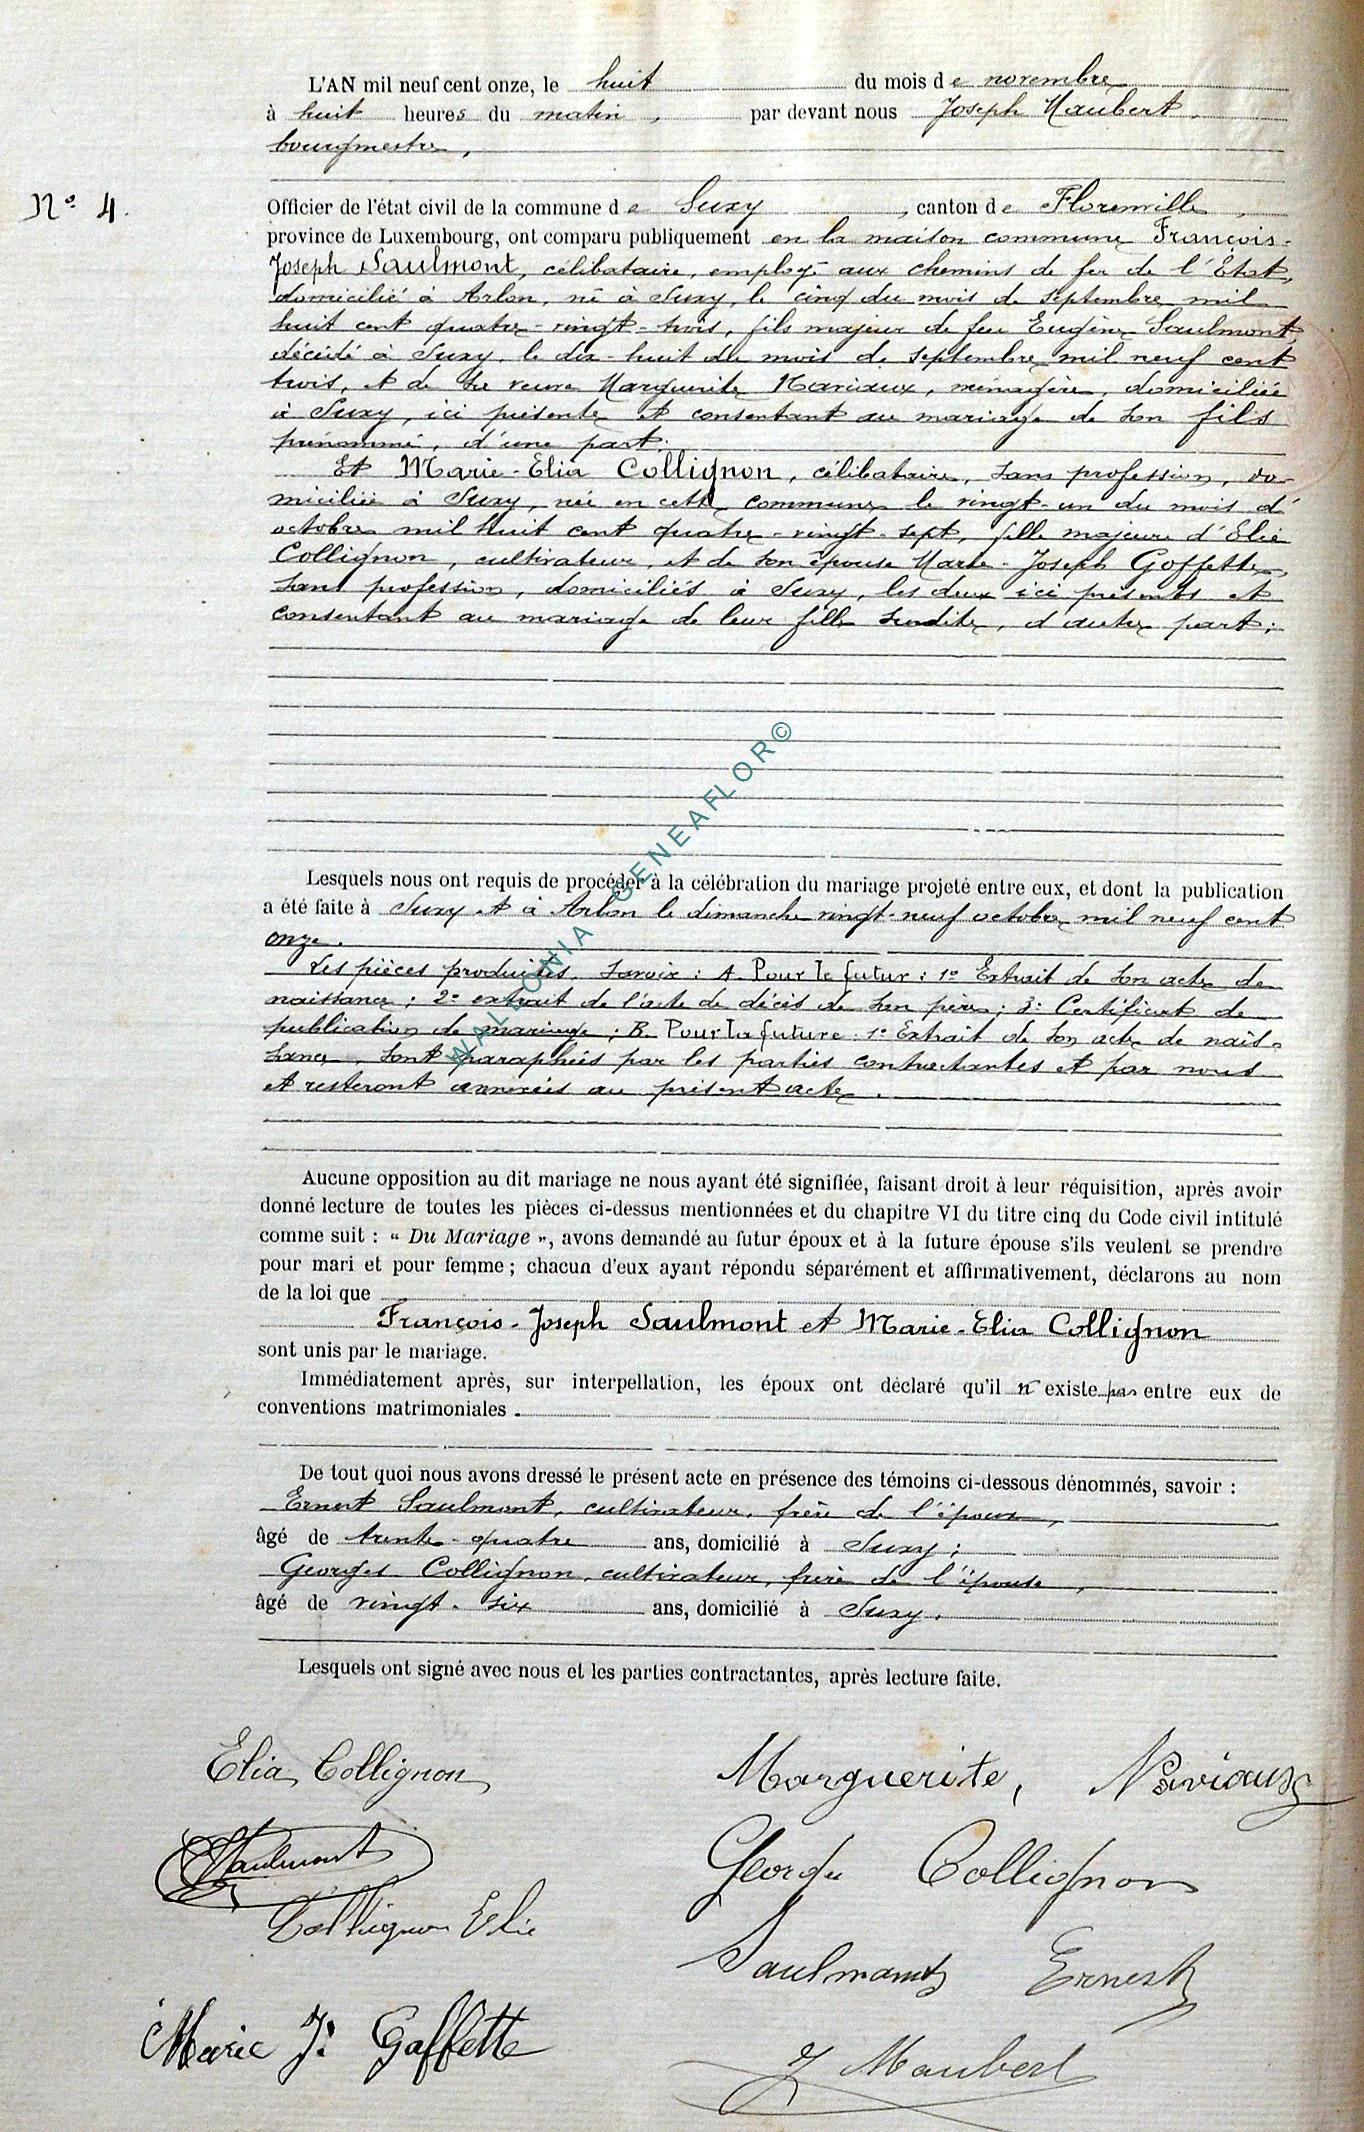 L'AN mil neuf cent onze, le huit du mois de novembre
à huit heures du matin, par devant nous Joseph Maubert,
bourgmestre,
N° 4.
Officier de l'état civil de la commune de Suxy, canton de Florenville,
province de Luxembourg, ont comparu publiquement en la maison commune François-
Joseph Saulmont, célibataire, employé aux chemins de fer de l'État,
domicilié à Arlon, né à Suxy, le cinq du mois de septembre mil
huit cent quatre-vingt-trois, fils majeur de feu Eugène Saulmont,
décédé à Suxy, le dix-huit du mois de septembre mil neuf cent
trois, et de sa veuve Marguerite Naviaux, ménagère, domiciliée
à Suxy, ici présente et consentant au mariage de son fils
prénommé, d'une part;
Et Marie-Elia Collignon, célibataire, sans profession, do-
miciliée à Suxy, née en cette commune le vingt-un du mois d'
octobre mil huit cent quatre-vingt-sept, fille majeure d'Elie
Collignon, cultivateur, et de son épouse Marie-Joseph Goffette,
sans profession, domiciliés à Suxy, les deux ici présents et
consentant au mariage de leur fille susdite, d'autre part;
Lesquels nous ont requis de procéder à la célébration du mariage projeté entre eux, et dont la publication
a été faite à Suxy et à Arlon le dimanche vingt-neuf octobre mil neuf cent
onze.
Les pièces produites, savoir : A. Pour le futur : 1° Extrait de son acte de
naissance; 2° extrait de l'acte de décès de son père; 3° Certificat de
publication de mariage; B. Pour la future : 1° Extrait de son acte de nais-
sance, sont paraphées par les parties contractantes et par nous
et resteront annexées au présent acte.
Aucune opposition au dit mariage ne nous ayant été signifiée, faisant droit à leur réquisition, après avoir
donné lecture de toutes les pièces ci-dessus mentionnées et du chapitre VI du titre cinq du Code civil intitulé
comme suit : « Du Mariage », avons demandé au futur époux et à la future épouse s'ils veulent se prendre
pour mari et pour femme ; chacun d'eux ayant répondu séparément et affirmativement, déclarons au nom
de la loi que
François-Joseph Saulmont et Marie-Elia Collignon
sont unis par le mariage.
Immédiatement après, sur interpellation, les époux ont déclaré qu'il n'existe pas entre eux de
conventions matrimoniales.
De tout quoi nous avons dressé le présent acte en présence des témoins ci-dessous dénommés, savoir :
Ernest Saulmont, cultivateur, frère de l'époux,
âgé de trente-quatre ans, domicilié à Suxy;
Georges Collignon, cultivateur, frère de l'épouse,
âgé de vingt-six ans, domicilié à Suxy.
Lesquels ont signé avec nous et les parties contractantes, après lecture faite.
Elia Collignon Marguerite, Naviaux
Saulmont Georges Collignon
Collignon Elie
Saulmont Ernest
Marie J. Goffette
J Maubert
WALLONIA GENEAFLOR©